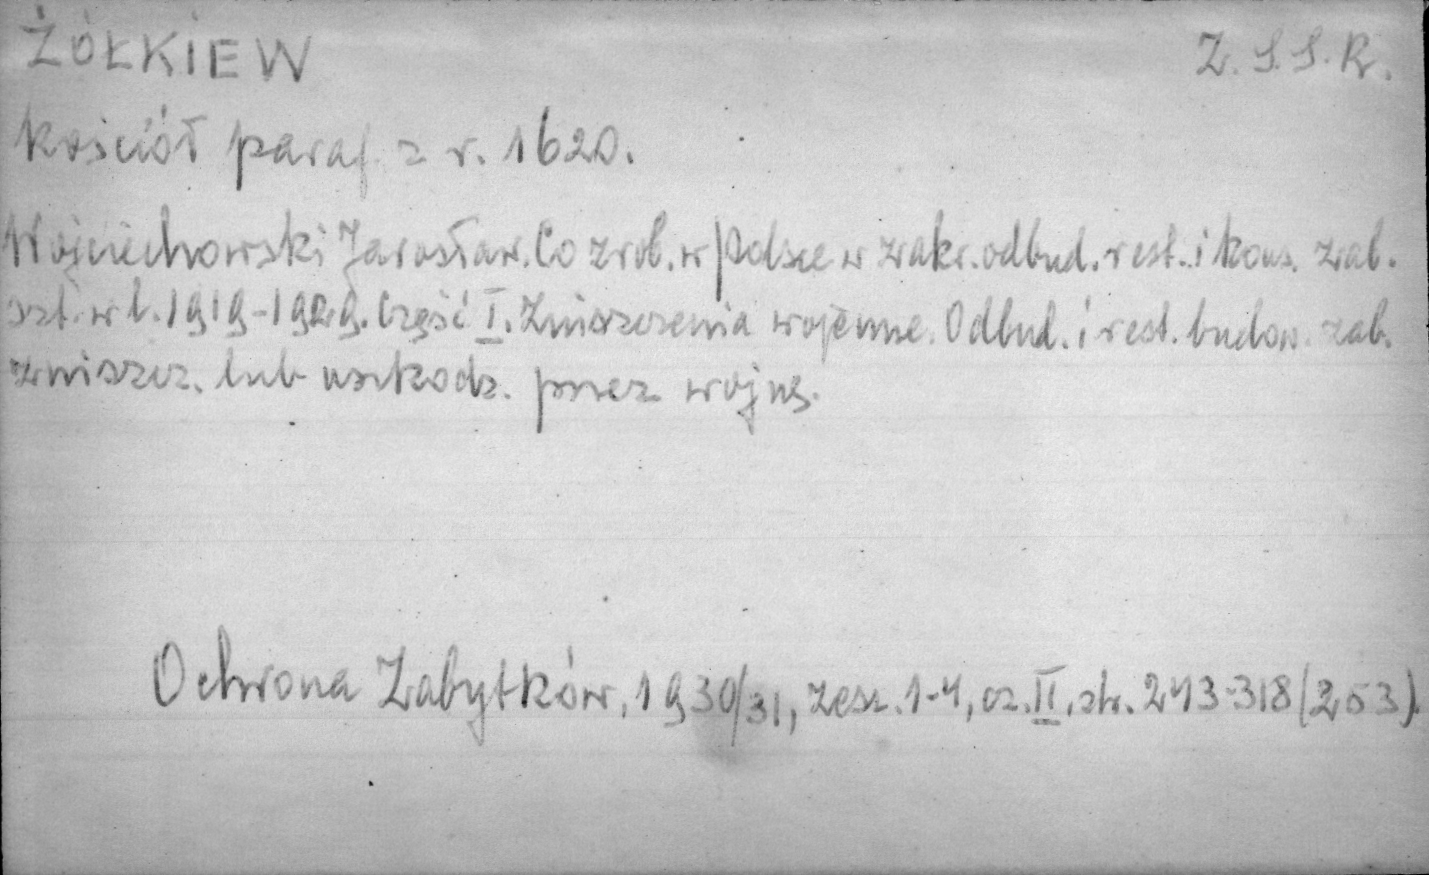 ŻÓŁKIEW
Z.S.S.R.
kościół paraf. z r. 1620.
Wojciechowski Jarosław. Co zrob. w Polsce w zakr. odbud. rest. i kons. zab.
szt. w l. 1919-1929. Część I. Zniszczenia wojenne. Odbud. i rest. budow. zab.
zniszcz. lub uszkodz. przez wojnę.
Ochrona Zabytków, 1930/31, zesz. 1-4, cz. II, str. 243-318 (253).